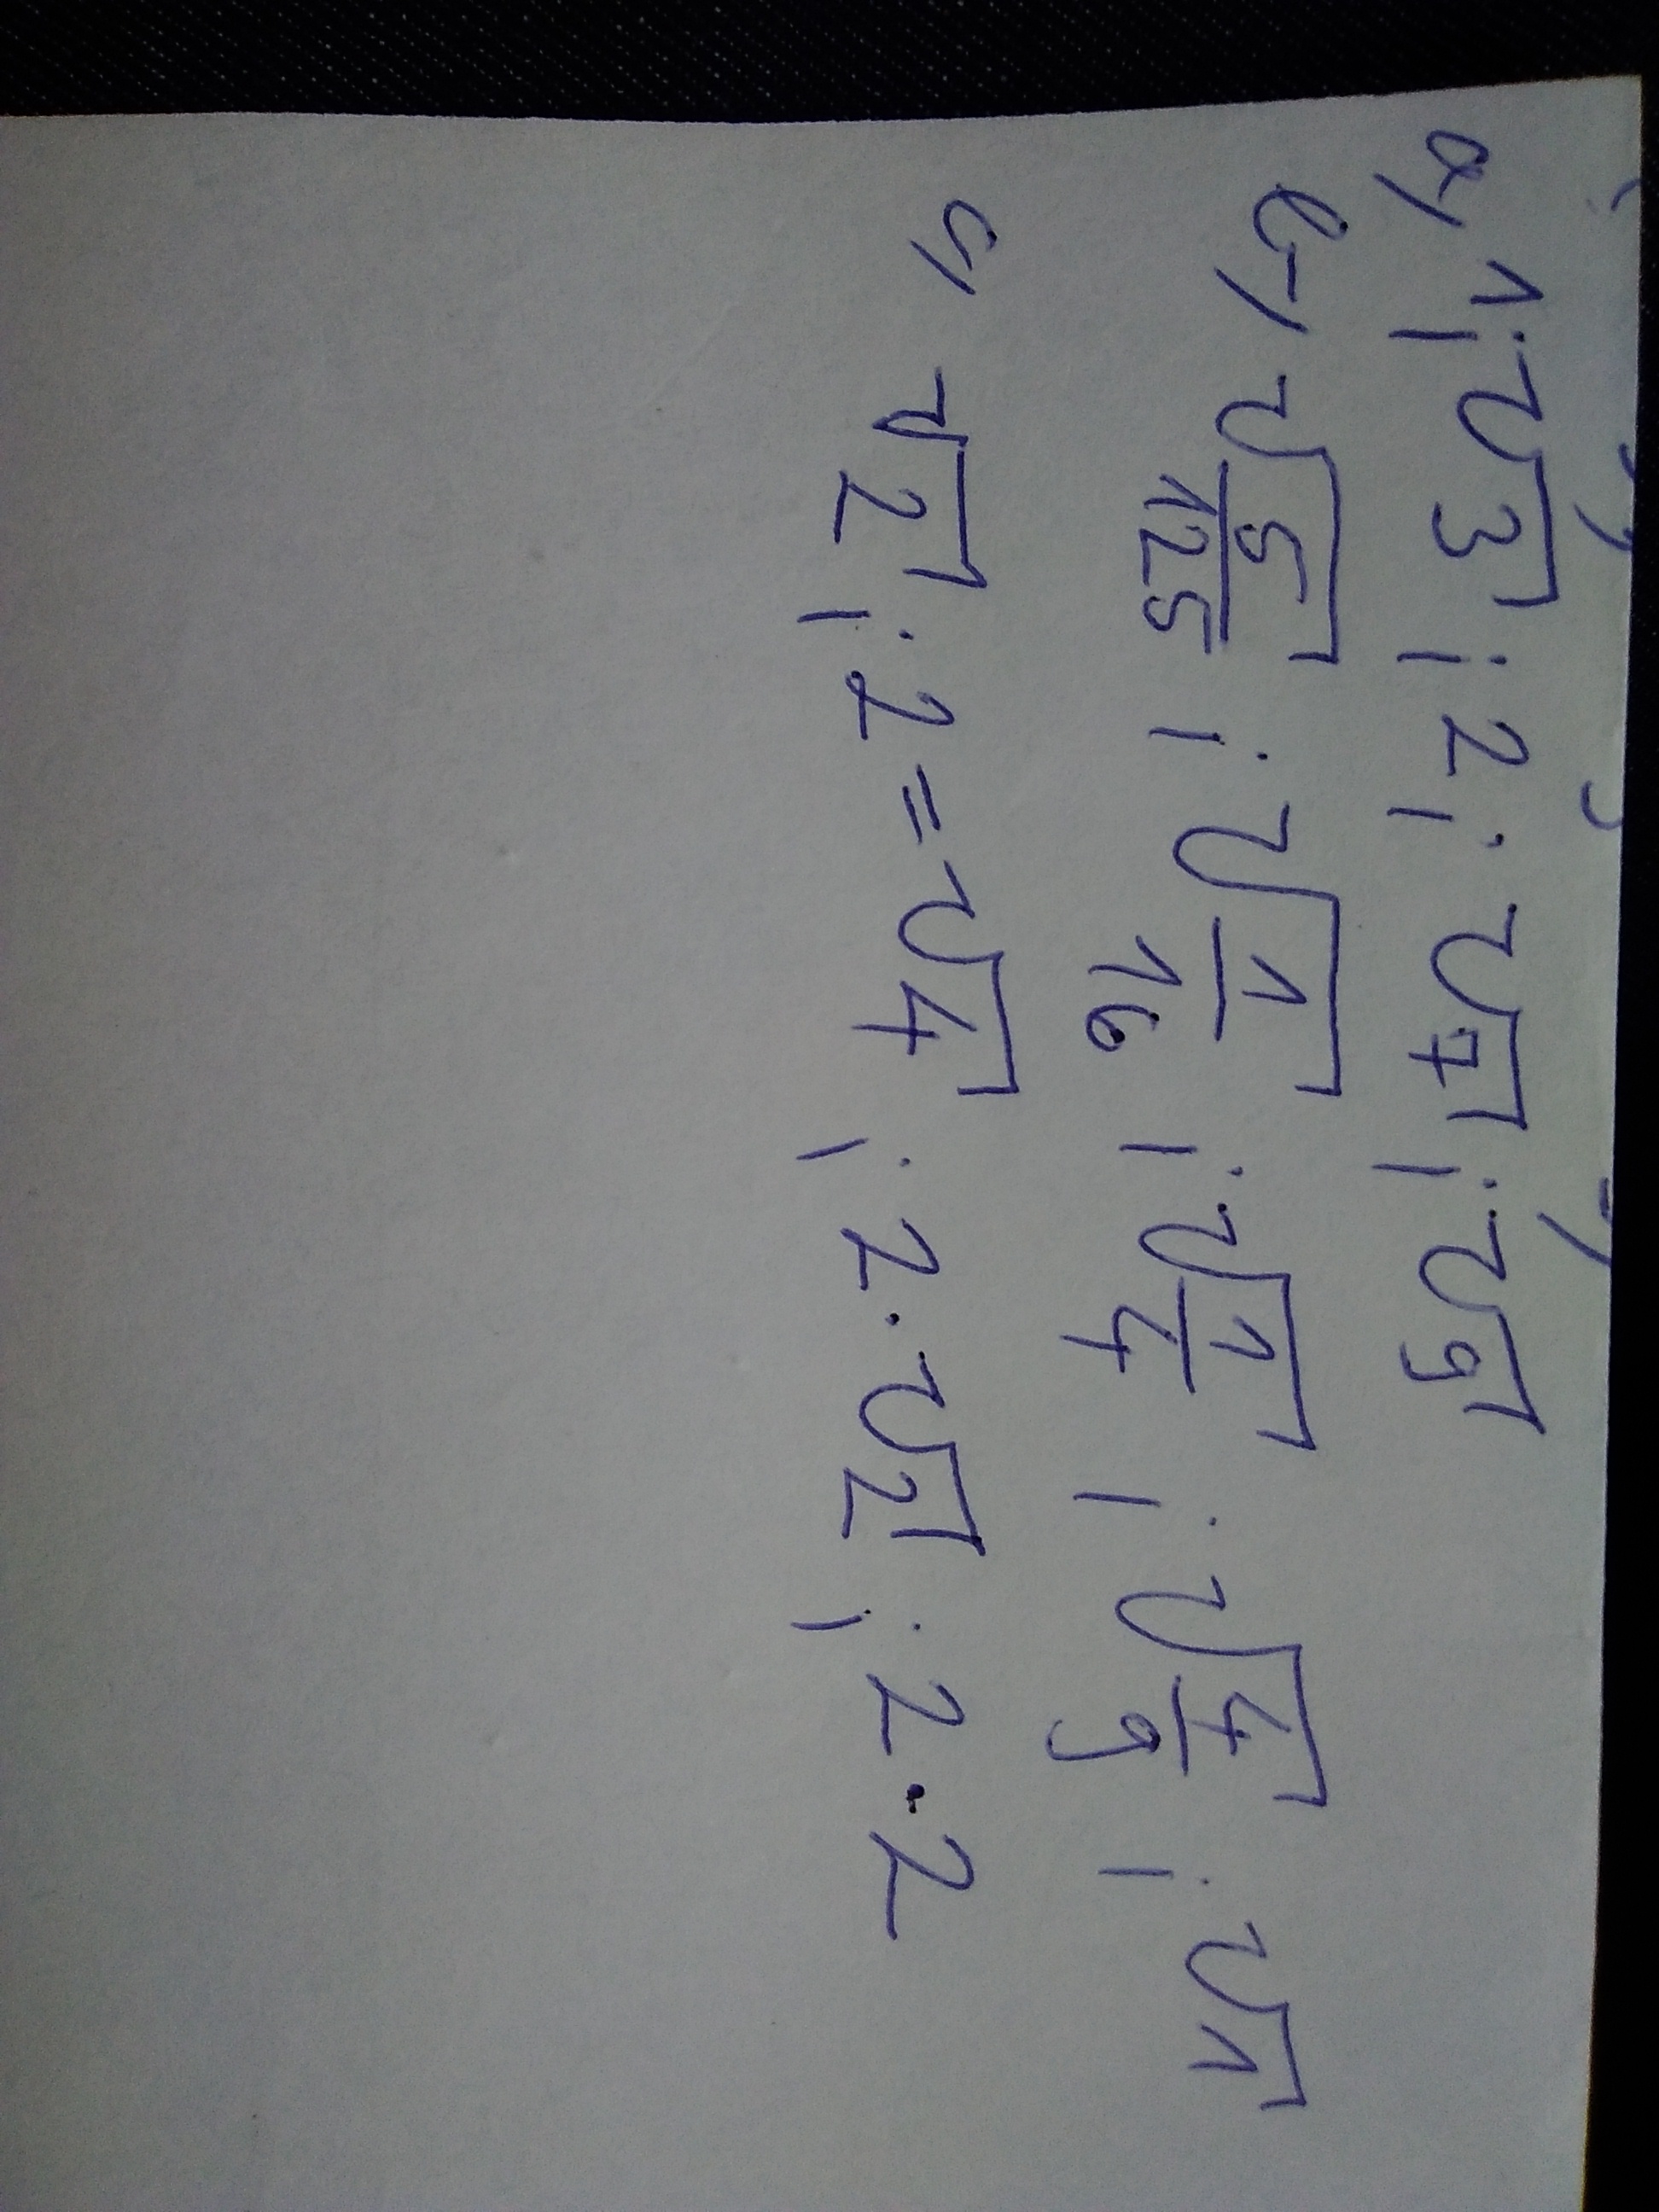 a, 1; √3; 2; √7; √9
b, √5/125; √1/16; √1/4; √4/9; √1
c, √2; 2=√4; 2·√2; 2·2